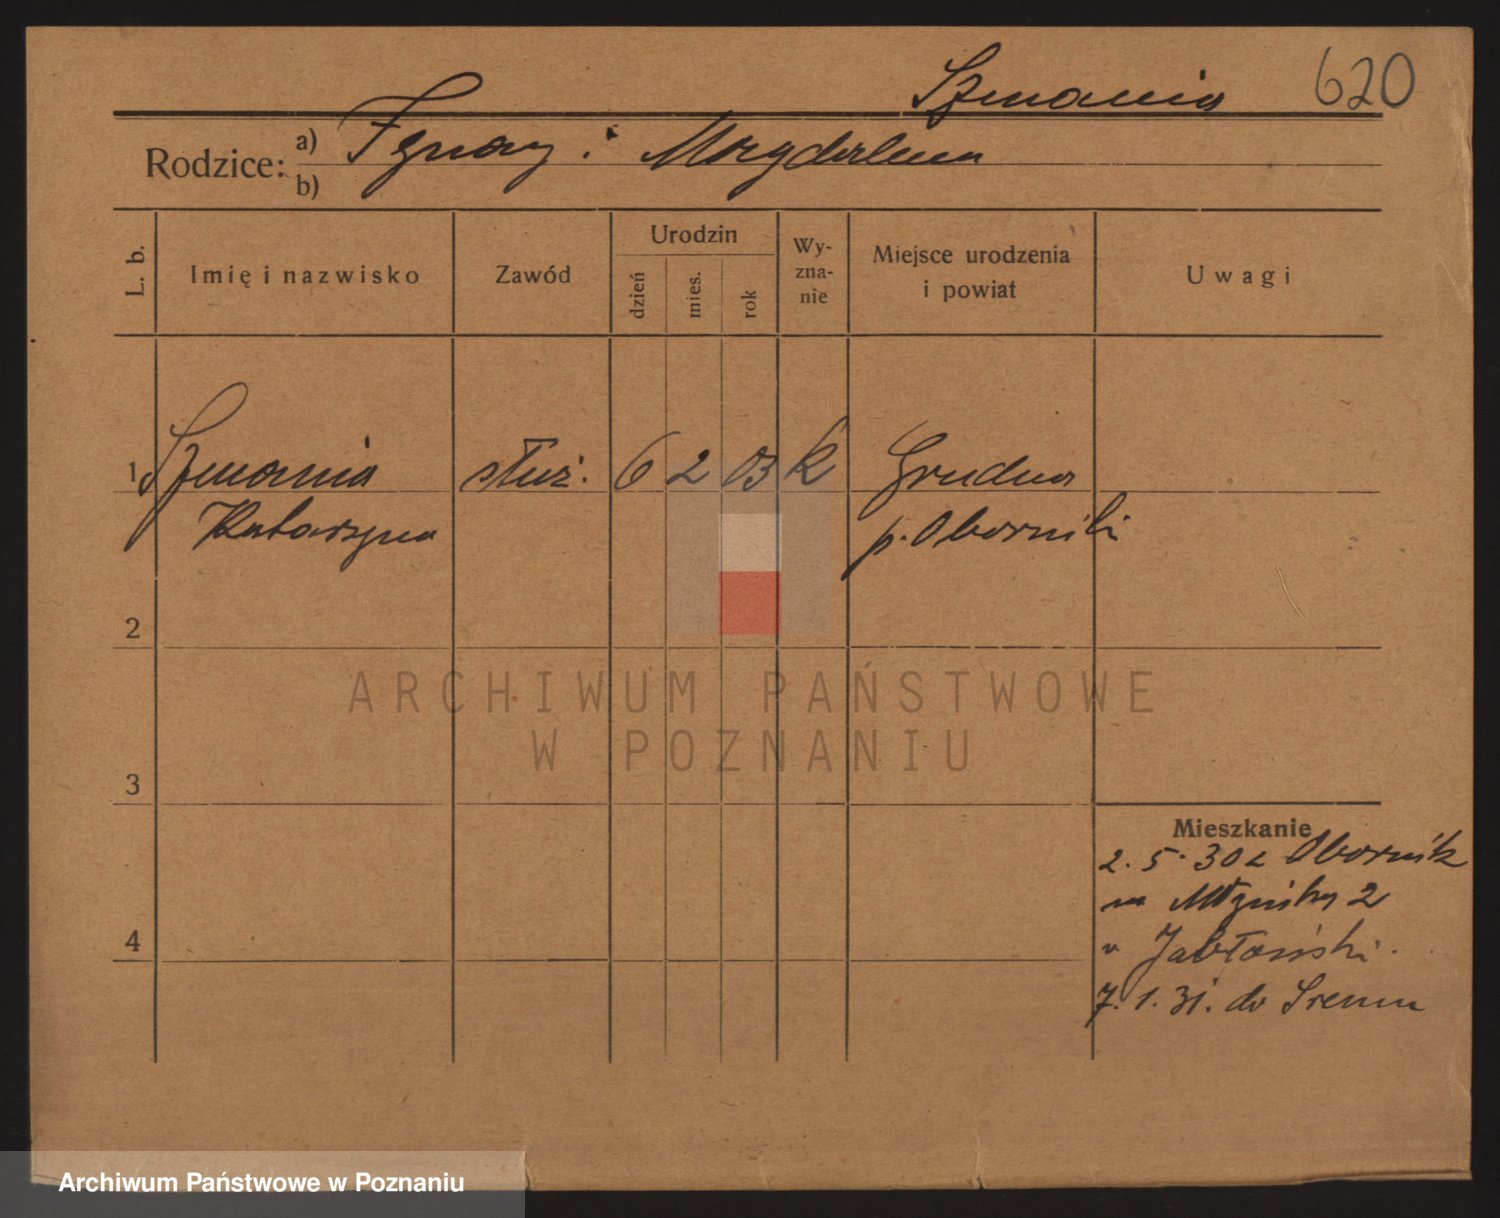 Szmania 620
Rodzice: a) Ignacy i Magdalena
b)
L. b. Imię i nazwisko Zawód Urodzin dzień mies. rok Wy-zna-nie Miejsce urodzenia i powiat Uwagi
1 Szmania służ. 6 2 03 k Grudna
Katarzyna p. Oborniki
2
ARCHIWUM PAŃSTWOWE
W POZNANIU
3
Mieszkanie
2. 5. 30 z Obornik
na Młyńską 2
4
v Jabłoński.
7. 1. 31. do Śremu
Archiwum Państwowe w Poznaniu